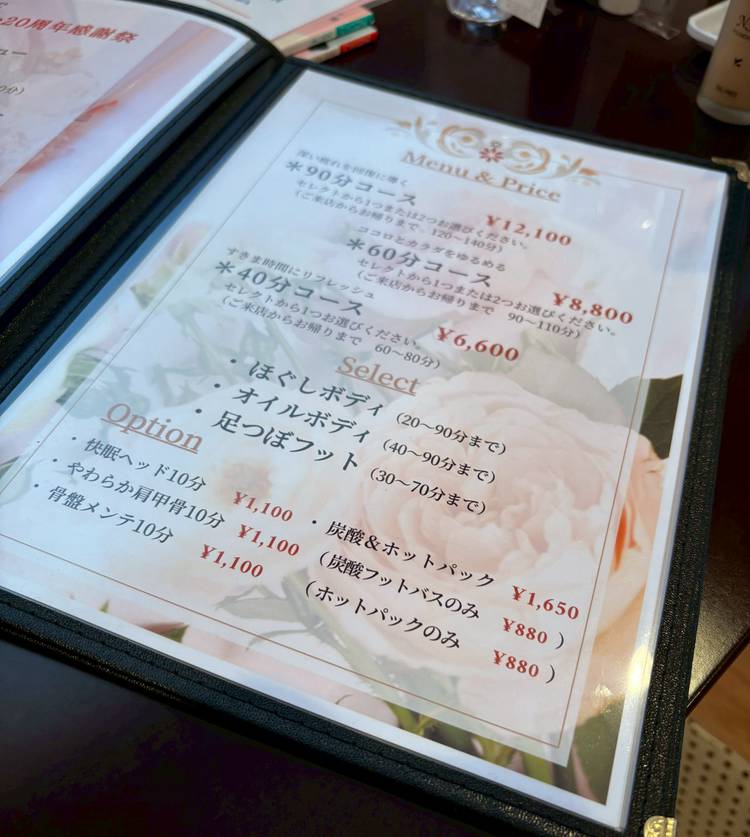 20周年感謝祭
Menu & Price
深い疲れを回復に導く
＊90分コース ¥12,100
セレクトから1つまたは2つお選びください。
（ご来店からお帰りまで　120～140分）
ココロとカラダをゆるめる
＊60分コース ¥8,800
セレクトから1つまたは2つお選びください。
（ご来店からお帰りまで　90～110分）
すきま時間にリフレッシュ
＊40分コース ¥6,600
セレクトから1つお選びください。
（ご来店からお帰りまで　60～80分）
Select
・ほぐしボディ（20～90分まで）
・オイルボディ（40～90分まで）
・足つぼフット（30～70分まで）
Option
・快眠ヘッド10分 ¥1,100
・やわらか肩甲骨10分 ¥1,100
・骨盤メンテ10分 ¥1,100
・炭酸＆ホットパック ¥1,650
（炭酸フットバスのみ ¥880）
（ホットパックのみ ¥880）